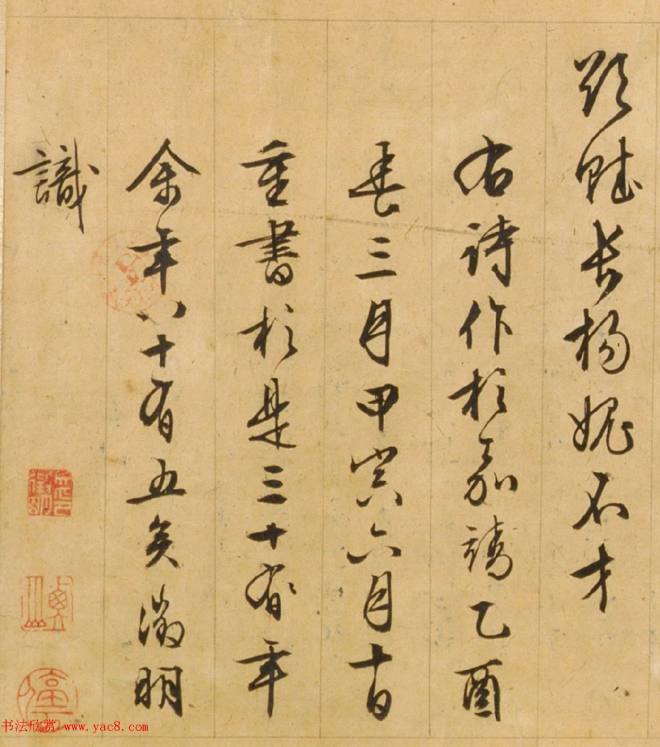 欲赋长杨愧不才
右诗作於嘉靖乙酉
春三月甲寅六月十日
重書於是三十有年
余年八十有五矣徵明
識
书法欣赏 www.yac8.com